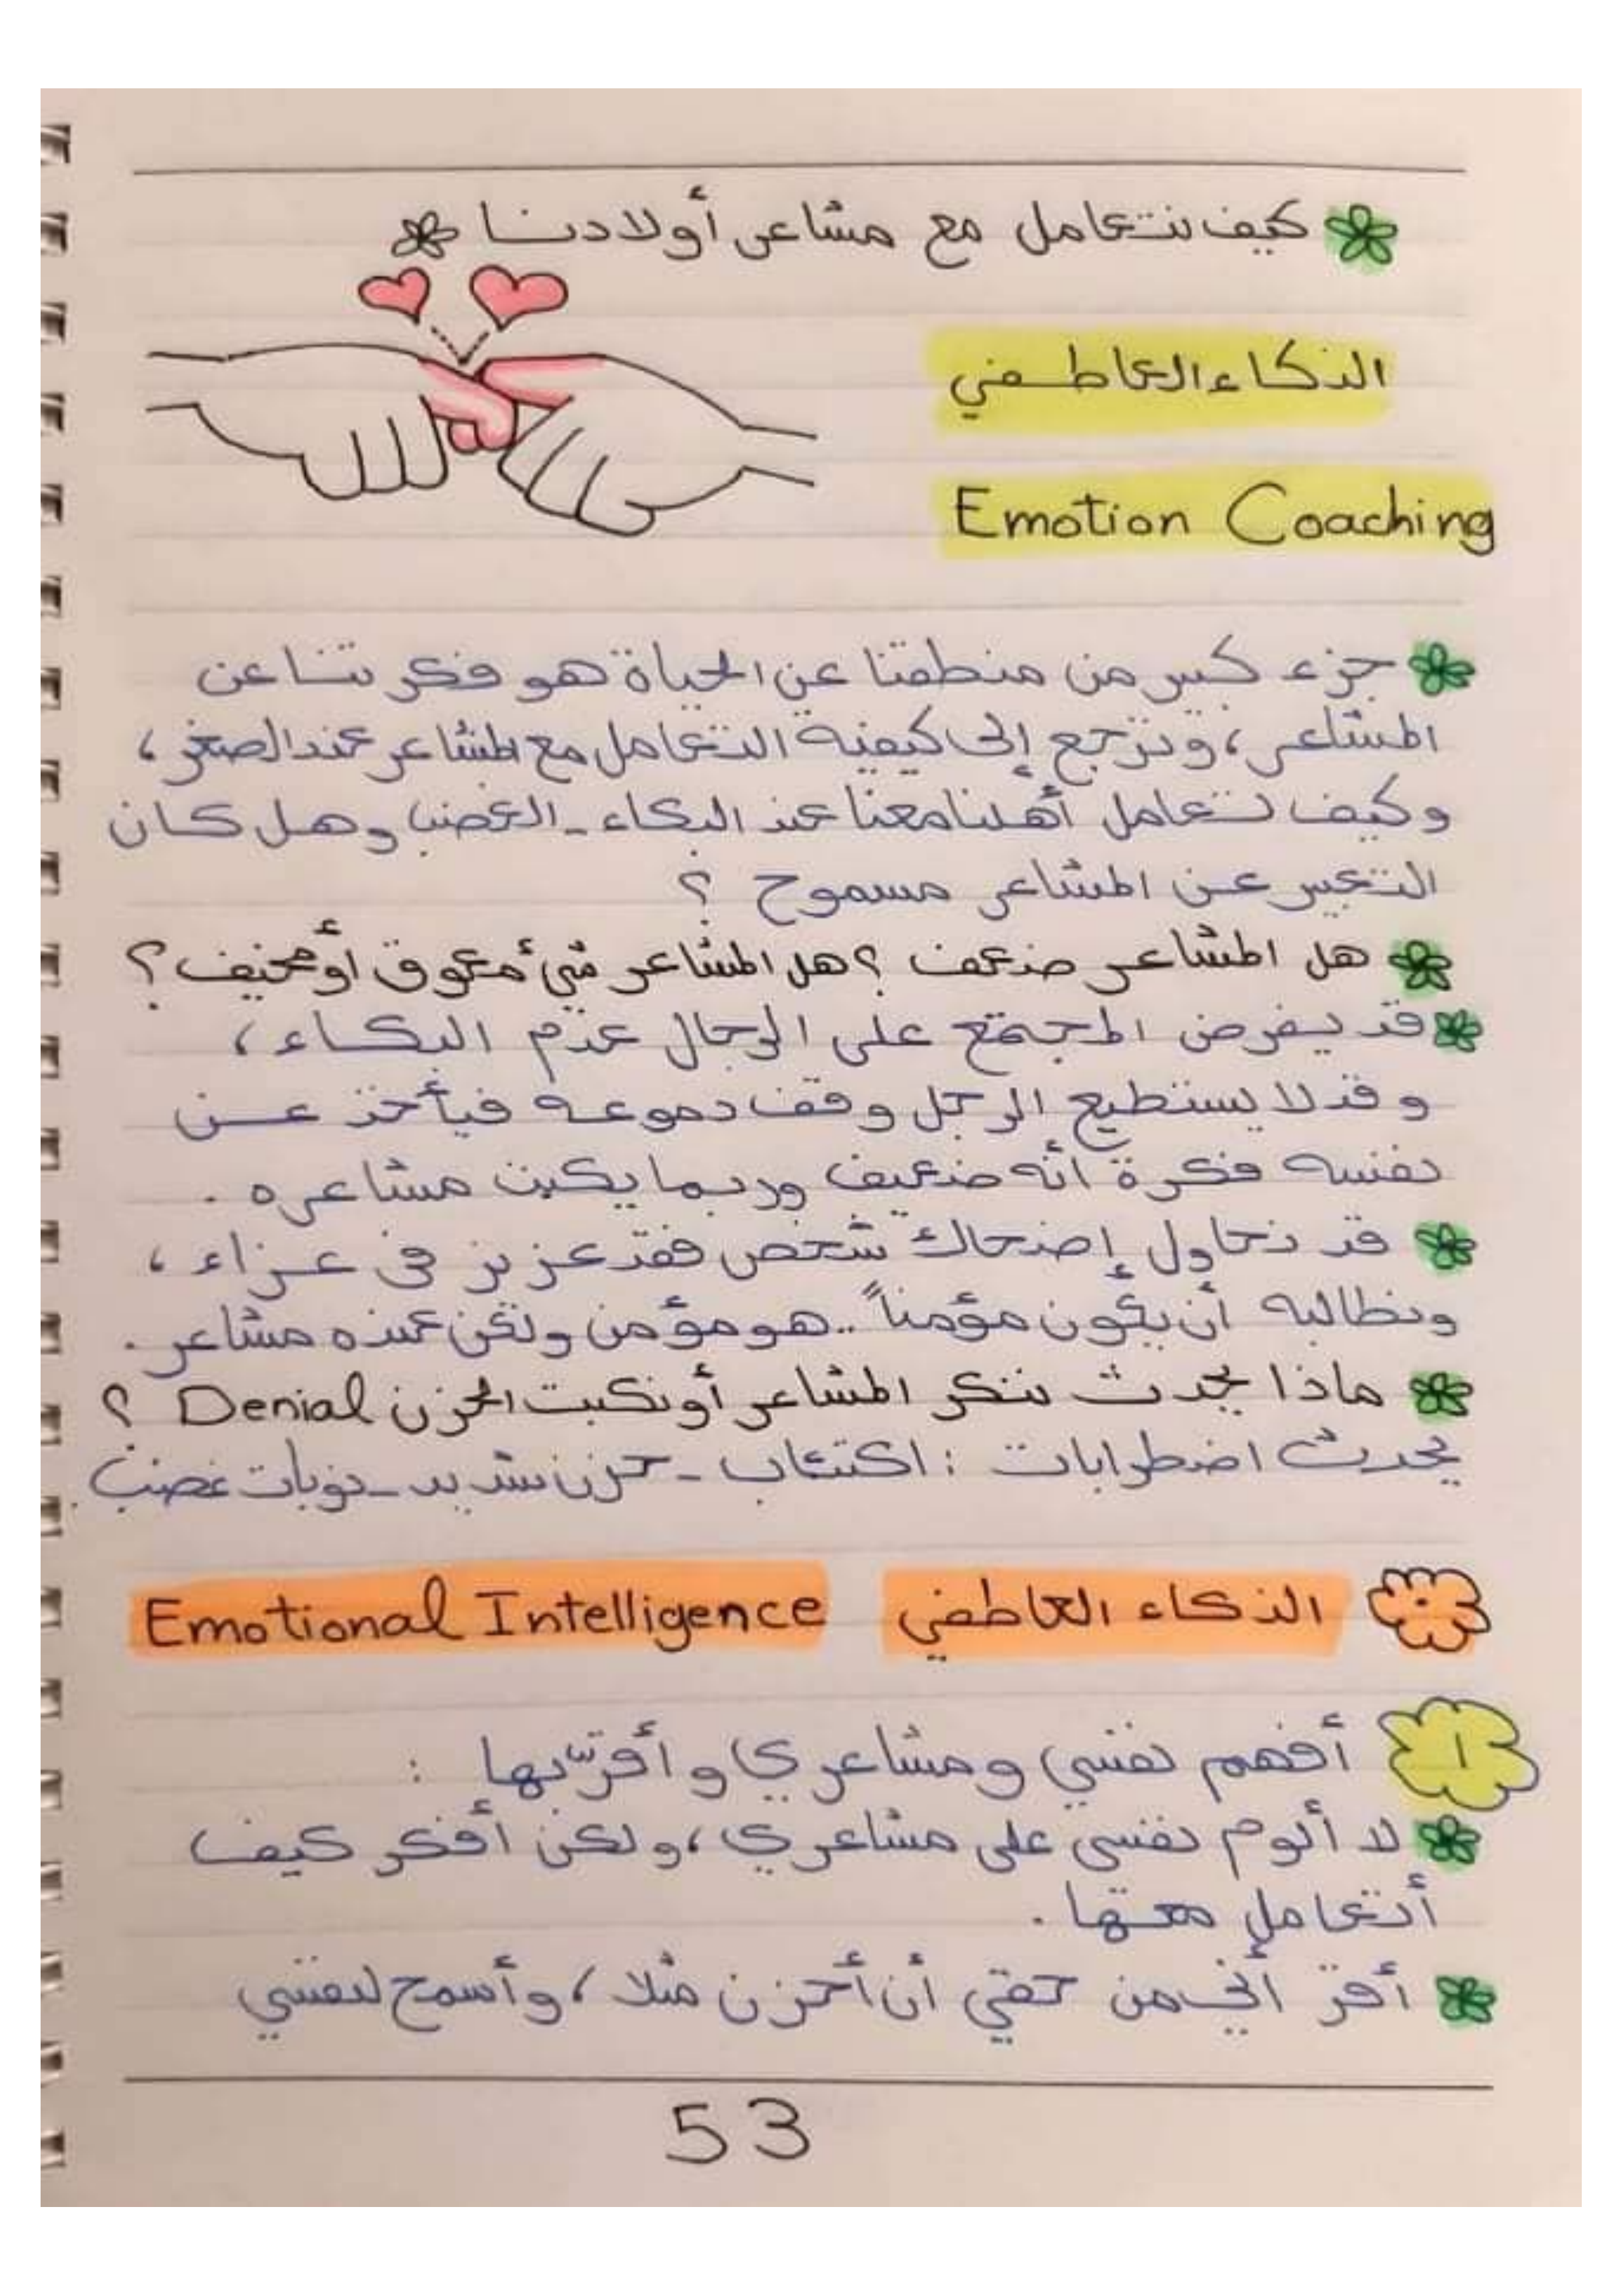 كيف نتعامل مع مشاعر أولادنا
الذكاء العاطفي
Emotion Coaching
جزء كبير من منطقنا عن الحياة هو فكرتنا عن
المشاعر، وترجع إلى كيفية التعامل مع المشاعر عند الصغر،
وكيف تعامل أهلنا معنا عند البكاء - الغضب وهل كان
التعبير عن المشاعر مسموح ؟
هل المشاعر ضعف ؟ هل المشاعر شيء معوق أو مخيف ؟
قد يفرض المجتمع على الرجال عدم البكاء،
وقد لا يستطيع الرجل وقف دموعه فيأخذ عن
نفسه فكرة أنه ضعيف وربما يكبت مشاعره .
قد نحاول إضحاك شخص فقد عزيز في عزاء،
ونطالبه أن يكون مؤمناً .. هو مؤمن ولكن عنده مشاعر .
ماذا يحدث ننكر المشاعر أو نكبت الحزن Denial ؟
يحدث اضطرابات : اكتئاب - حزن شديد - نوبات غضب .
الذكاء العاطفي Emotional Intelligence
١ أفهم نفسي ومشاعري وأقرّ بها :
لا ألوم نفسي على مشاعري، ولكن أفكر كيف
أتعامل معها .
أقرّ أني من حقي أن أحزن مثلا، وأسمح لنفسي
53